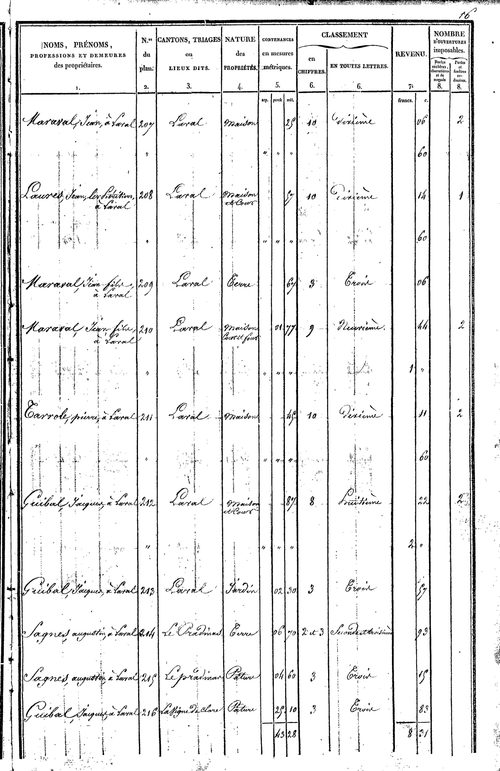 16
NOMS, PRÉNOMS, PROFESSIONS ET DEMEURES des propriétaires. N.os du plan. CANTONS, TRIAGES ou LIEUX DITS. NATURE des PROPRIÉTÉS. CONTENANCES en mesures métriques. CLASSEMENT en CHIFFRES. EN TOUTES LETTRES. REVENU. NOMBRE D'OUVERTURES imposables.
1. 2. 3. 4. 5. 6. 6. 7. 8. 8.
arp. perch. mèt. francs. c.
Maraval, Jean, à Laval 207 Laval Maison 25 10 Dixième 06 2
" " " " 60
Laures, Jean, à Laval 208 Laval Maison et Cour 57 10 Dixième 14 1
" " " " 60
Maraval, Jean fils, à Laval 209 Laval Terre 67 3 Trois 06
Maraval, Jean fils, à Laval 210 Laval Maison Cour et four 01 77 9 Neuvième 44 2
1 "
Tarrole, pierre, à Laval 211 Laval Maison 45 10 Dixième 11 2
" " " " 60
Guibal, Jacques, à Laval 212 Laval Maison et Cour 87 8 huitième 22 2
" " " " 2 "
Guibal, Jacques, à Laval 213 Laval Jardin 02 30 3 Trois 57
Sagnes, augustin, à Laval 214 Le Pradinas Terre 06 70 2 et 3 Second et troisième 93
Sagnes, augustin, à Laval 215 Le pradinas Pâture 04 60 3 Trois 15
Guibal, Jacques, à Laval 216 Pâture 25 10 3 Trois 83
43 28 8 31